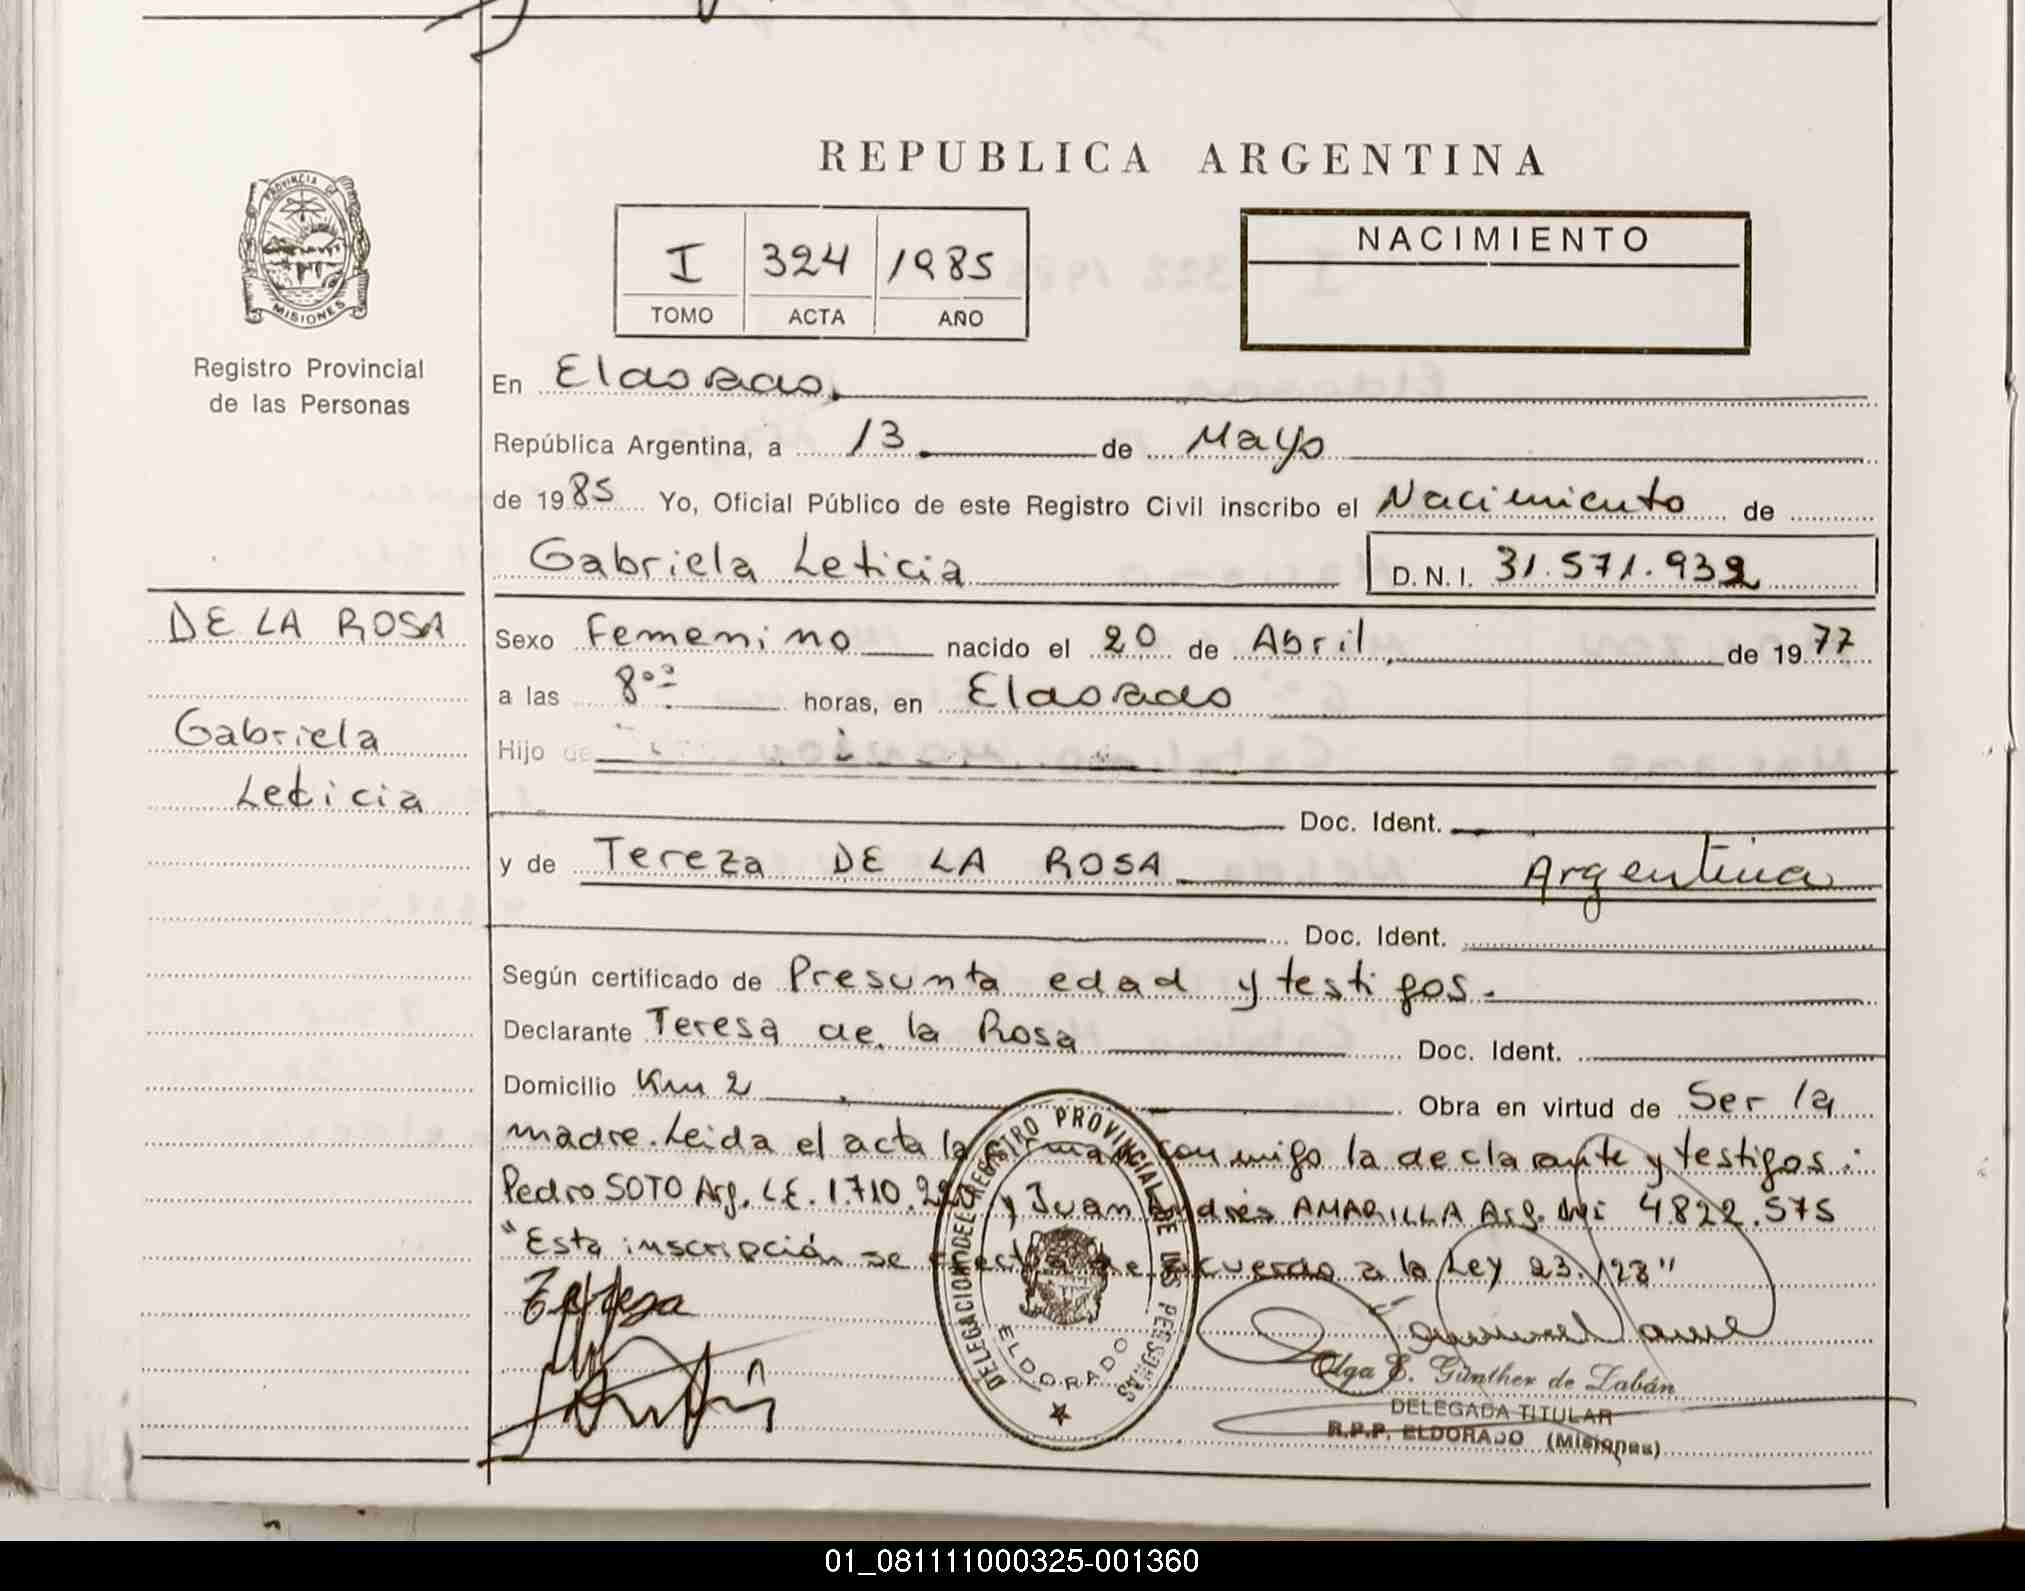 REPUBLICA ARGENTINA
PROVINCIA DE
MISIONES
Registro Provincial
de las Personas
I 324 1985
TOMO ACTA AÑO
NACIMIENTO
En Eldorado
República Argentina, a 13 de Mayo
de 1985 Yo, Oficial Público de este Registro Civil inscribo el Nacimiento de
Gabriela Leticia D.N.I. 31.571.932
DE LA ROSA
Gabriela
Leticia
Sexo Femenino nacido el 20 de Abril de 1977
a las 8ºº horas, en Eldorado
Hijo de
Doc. Ident.
y de Tereza DE LA ROSA Argentina
Doc. Ident.
Según certificado de Presunta edad y testigos.
Declarante Teresa de la Rosa Doc. Ident.
Domicilio Km 2 Obra en virtud de Ser la
madre. Leida el acta la conmigo la declarante y testigos:
Pedro SOTO Arg. L.E. 1.710. y Juan Andrés AMARILLA Arg. 4.822.575
"Esta inscripción se efectúa de acuerdo a la Ley 23.128"
DELEGACION DEL REGISTRO PROVINCIAL DE LAS PERSONAS
ELDORADO
Olga E. Günther de Zabán
DELEGADA TITULAR
R.P.P. ELDORADO (Misiones)
01_081111000325-001360